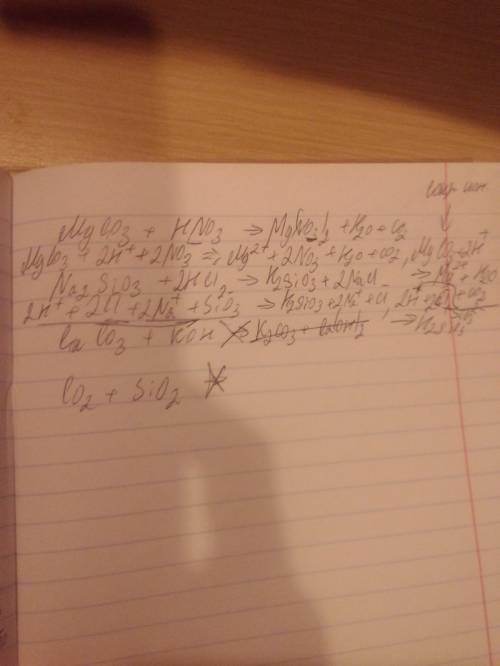 MgCO3 + HNO3 → Mg(NO3)2 + H2O + CO2
MgCO3 + 2H⁺ + 2NO3⁻ → Mg²⁺ + 2NO3⁻ + H2O + CO2, MgCO3 + 2H⁺
→ Mg²⁺ + H2O + CO2
Na2SiO3 + 2HCl → H2SiO3 + 2NaCl
2H⁺ + 2Cl⁻ + 2Na⁺ + SiO3 → H2SiO3 + 2Na⁺ + Cl, 2H⁺
→ H2SiO3
CaCO3 + KOH → K2CO3 + Ca(OH)2
CO2 + SiO2